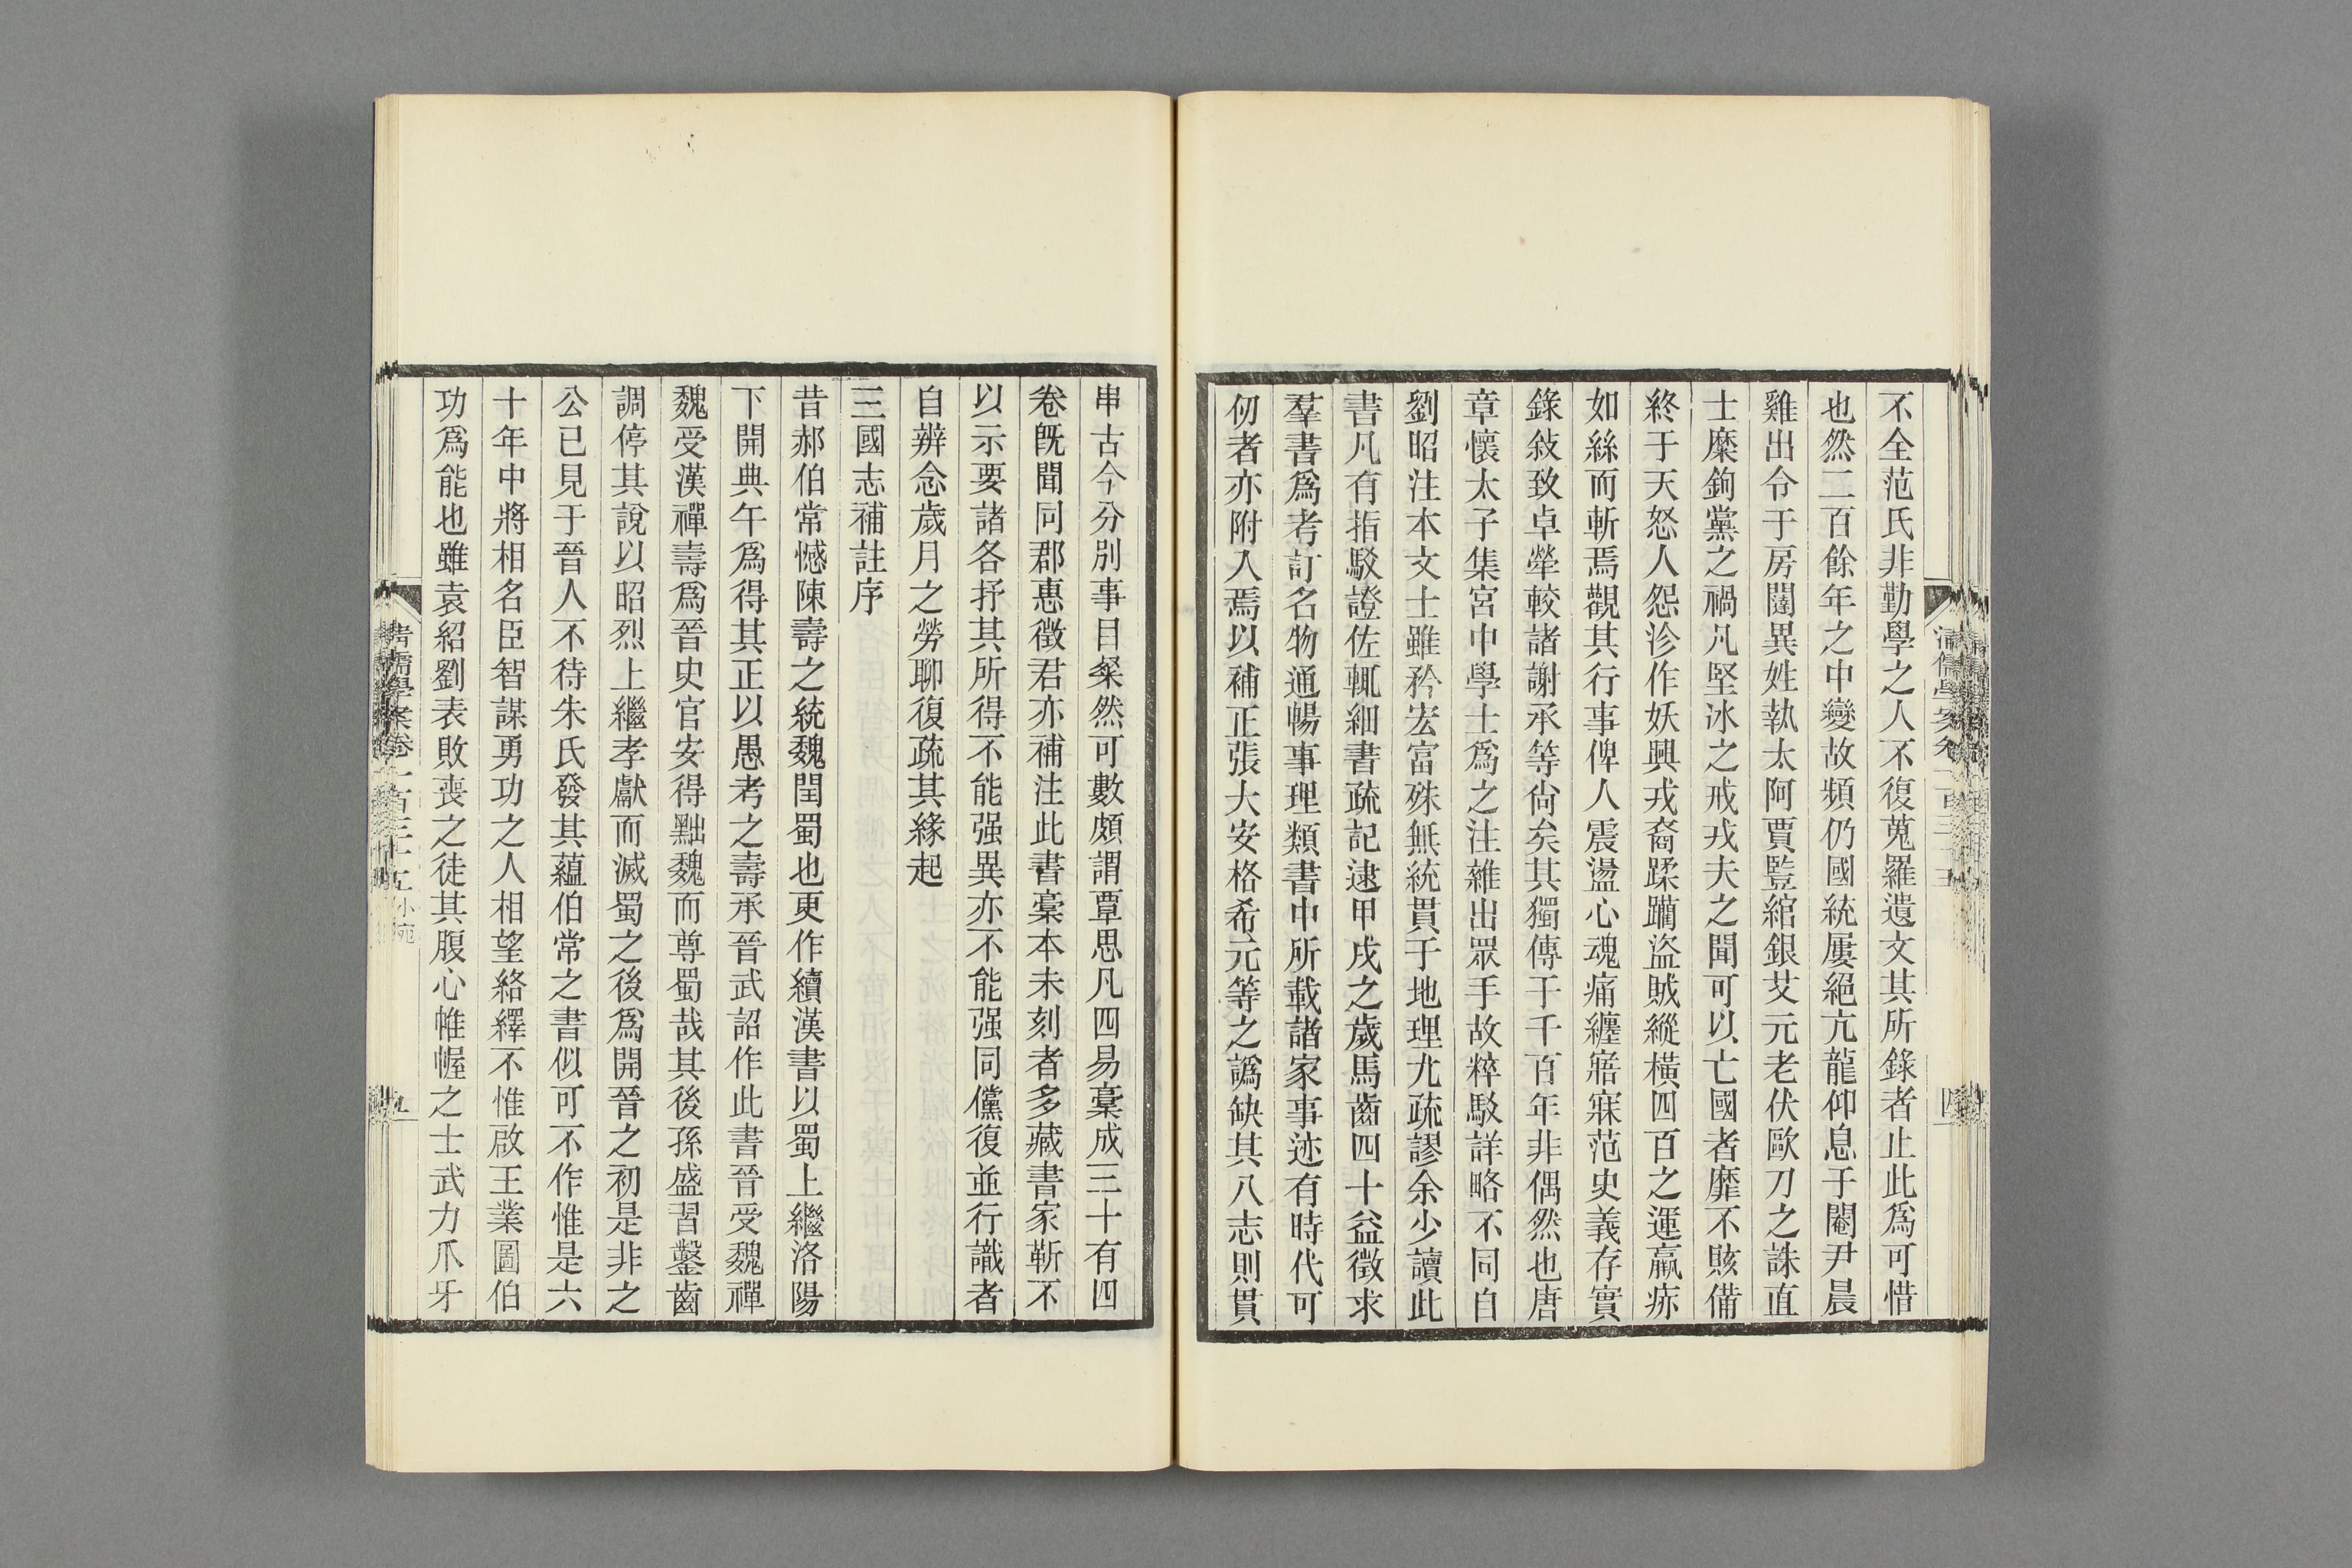 不全范氏非勤學之人不復蒐羅遺文其所錄者止此爲可惜
也然二百餘年之中變故頻仍國統屢絕亢龍仰息于閹尹晨
雞出令于房闥異姓執太阿賈豎綰銀艾元老伏歐刀之誅直
士糜鉤黨之禍凡堅冰之戒戎夫之聞可以亡國者靡不賅備
終于天怒人怨沴作妖興戎裔蹂躪盜賊縱橫四百之運羸痱
如絲而斬焉觀其行事俾人震盪心魂痛纏寤寐范史義存實
錄敍致卓犖較諸謝承等尙矣其獨傳于千百年非偶然也唐
章懷太子集宮中學士爲之注雜出眾手故粹駁詳略不同自
劉昭注本文士雖矜宏富殊無統貫于地理尤疏謬余少讀此
書凡有指駁證佐輒細書疏記逮甲戌之歲馬齒四十益徵求
羣書爲考訂名物通暢事理類書中所載諸家事迹有時代可
仞者亦附入焉以補正張大安格希元等之譌缺其八志則貫
清儒學案卷一百三十五
四
串古今分別事目粲然可數頗謂覃思凡四易槀成三十有四
卷旣聞同郡惠徵君亦補注此書槀本未刻者多藏書家靳不
以示要諸各抒其所得不能强異亦不能强同儻復並行識者
自辨念歲月之勞聊復疏其緣起
三國志補註序
昔郝伯常憾陳壽之統魏閏蜀也更作續漢書以蜀上繼洛陽
下開典午爲得其正以愚考之壽承晉武詔作此書晉受魏禪
魏受漢禪壽爲晉史官安得黜魏而尊蜀哉其後孫盛習鑿齒
調停其說以昭烈上繼孝獻而滅蜀之後爲開晉之初是非之
公已見于晉人不待朱氏發其蘊伯常之書似可不作惟是六
十年中將相名臣智謀勇功之人相望絡繹不惟啟王業圖伯
功爲能也雖袁紹劉表敗喪之徒其腹心帷幄之士武力爪牙
清儒學案卷一百三十五 小宛
五